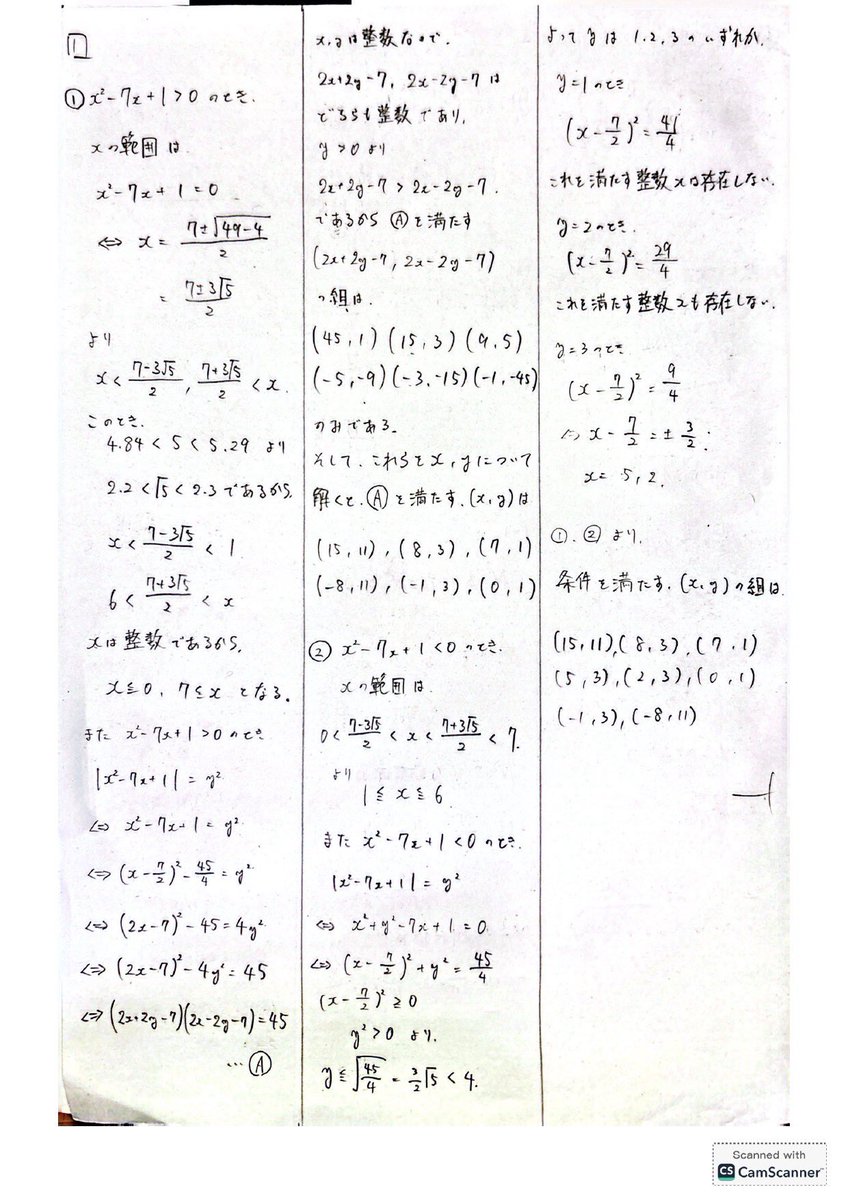 1
① x²-7x+1>0 のとき.
xの範囲は
x²-7x+1=0
⇔ x= (7±√(49-4))/2
= (7±3√5)/2
より
x< (7-3√5)/2 , (7+3√5)/2 <x.
このとき.
4.84<5<5.29 より
2.2<√5<2.3であるから.
x< (7-3√5)/2 <1
6< (7+3√5)/2 <x
xは整数であるから.
x≦0, 7≦x となる.
また x²-7x+1>0のとき
|x²-7x+1|=y²
⇔ x²-7x+1=y²
⇔ (x-7/2)²-45/4=y²
⇔ (2x-7)²-45=4y²
⇔ (2x-7)²-4y²=45
⇔ (2x+2y-7)(2x-2y-7)=45
…Ⓐ
x,yは整数なので.
2x+2y-7, 2x-2y-7 は
どちらも整数であり.
y>0より
2x+2y-7>2x-2y-7.
であるから Ⓐを満たす
(2x+2y-7, 2x-2y-7)
の組は.
(45,1) (15,3) (9,5)
(-5,-9) (-3,-15) (-1,-45)
のみである。
そして、これらをx,yについて
解くと.Ⓐを満たす.(x,y)は
(15,11), (8,3), (7,1)
(-8,11), (-1,3), (0,1)
② x²-7x+1<0のとき.
xの範囲は
0< (7-3√5)/2 <x< (7+3√5)/2 <7.
より
1≦x≦6
また x²-7x+1<0のとき.
|x²-7x+1|=y²
⇔ x²+y²-7x+1=0
⇔ (x-7/2)²+y²=45/4
(x-7/2)²≧0
y²>0 より.
y≦√(45/4)=3/2√5<4.
よって yは 1,2,3のいずれか.
y=1のとき
(x-7/2)²=41/4
これを満たす整数xは存在しない.
y=2のとき.
(x-7/2)²=29/4
これを満たす整数xも存在しない.
y=3のとき
(x-7/2)²=9/4
⇔ x-7/2=±3/2.
x=5,2.
①.②より.
条件を満たす.(x,y)の組は.
(15,11),(8,3),(7,1)
(5,3),(2,3),(0,1)
(-1,3),(-8,11)
Scanned with
CS CamScanner